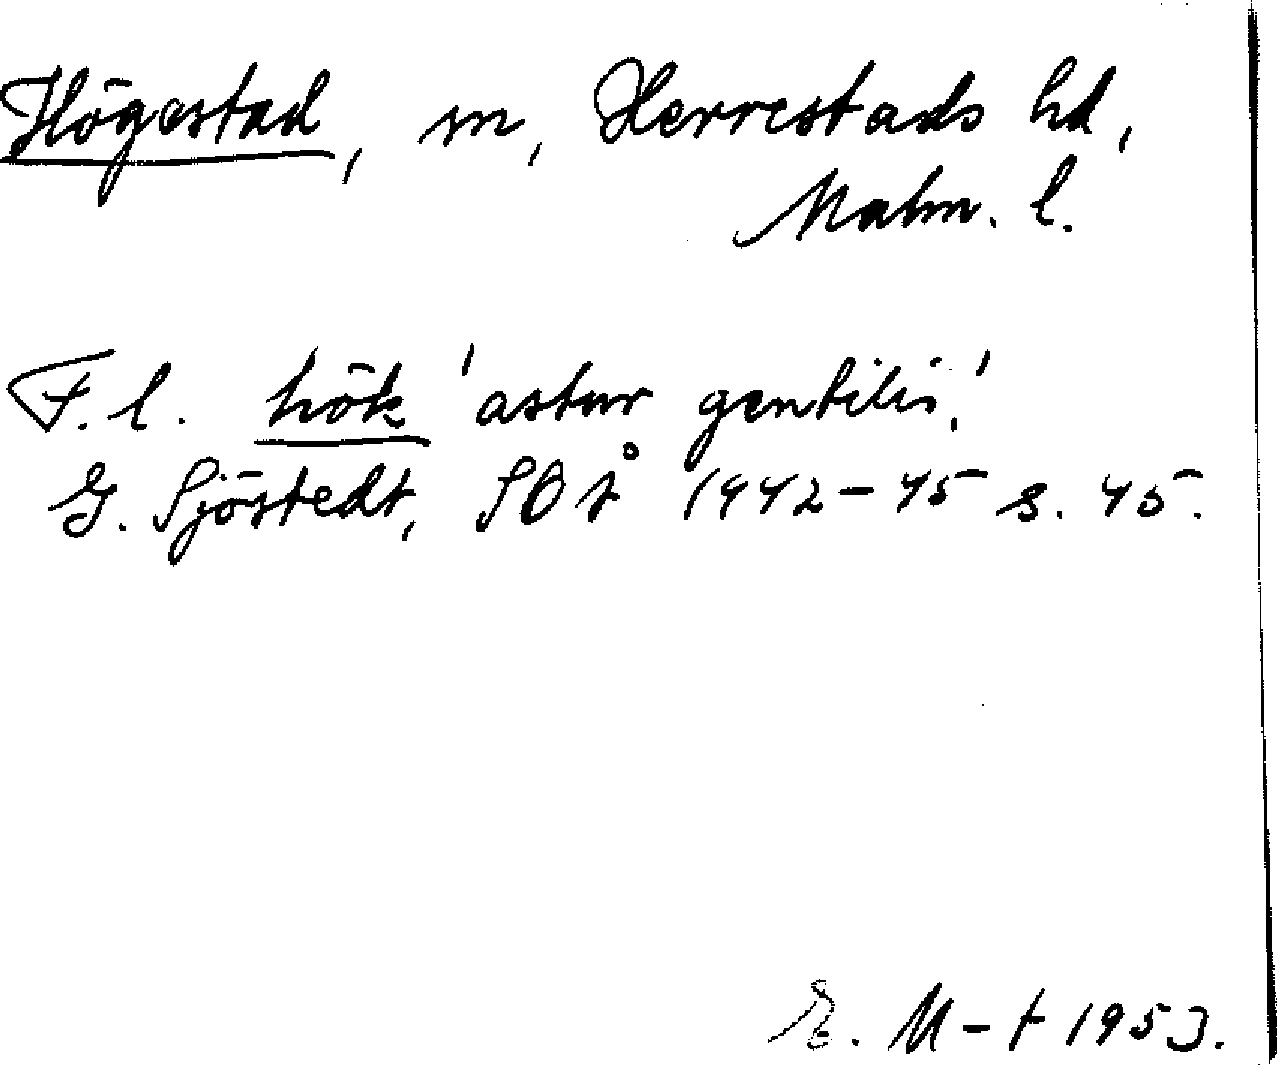 Högestad, sn, Herrestads hd,
Malm. l.
F. l. hök 'astur gentilis'.
G. Sjöstedt, SOÅ 1942-45 s. 45.
E. M-t 1953.